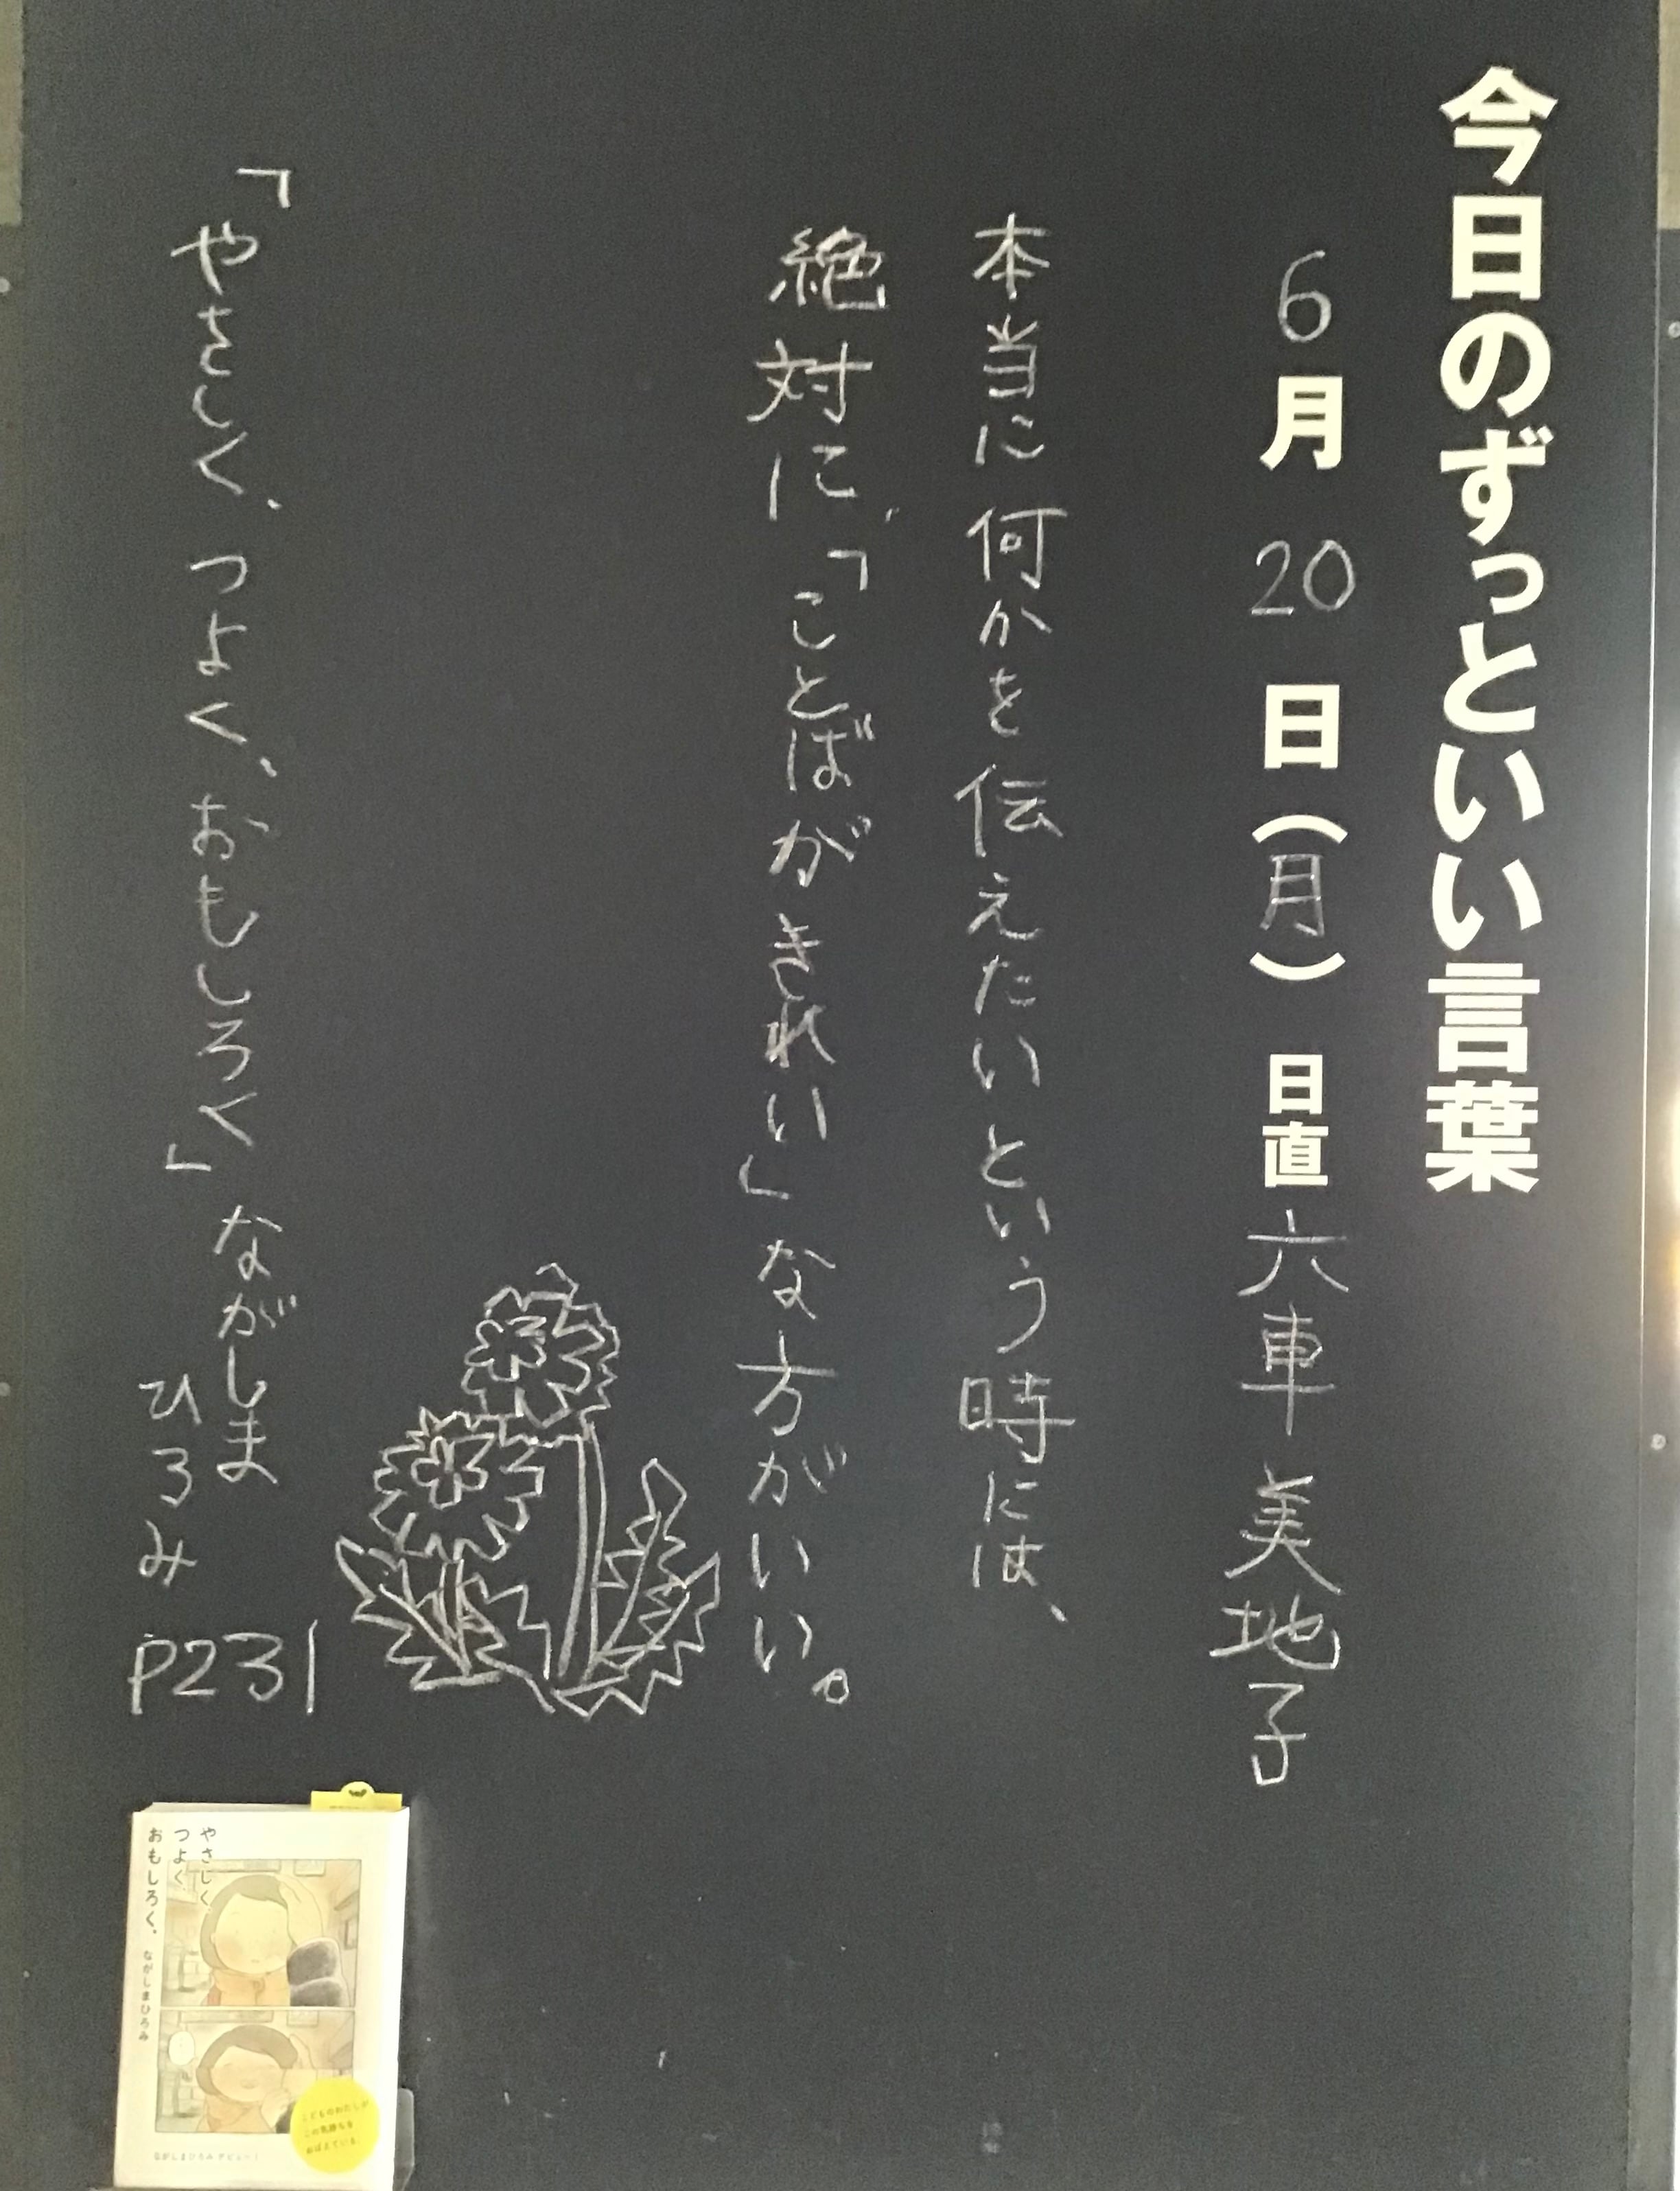 今日のずっといい言葉
6月20日(月) 日直 六車美地子
本当に何かを伝えたいという時には、
絶対に、「ことばがきれい」な方がいい。
「やさしく、つよく、おもしろく」 ながしま
ひろみ
P231
やさしく、
つよく、
おもしろく。
ながしまひろみ
こどものわたしが
この気持ちを
おぼえている。
ながしまひろみ デビュー!